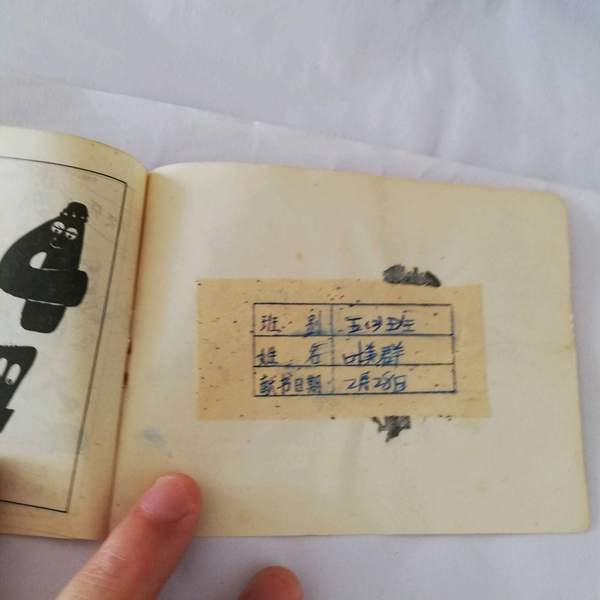 班 别 五(3)班
姓 名 叶美群
献书日期 2月28日